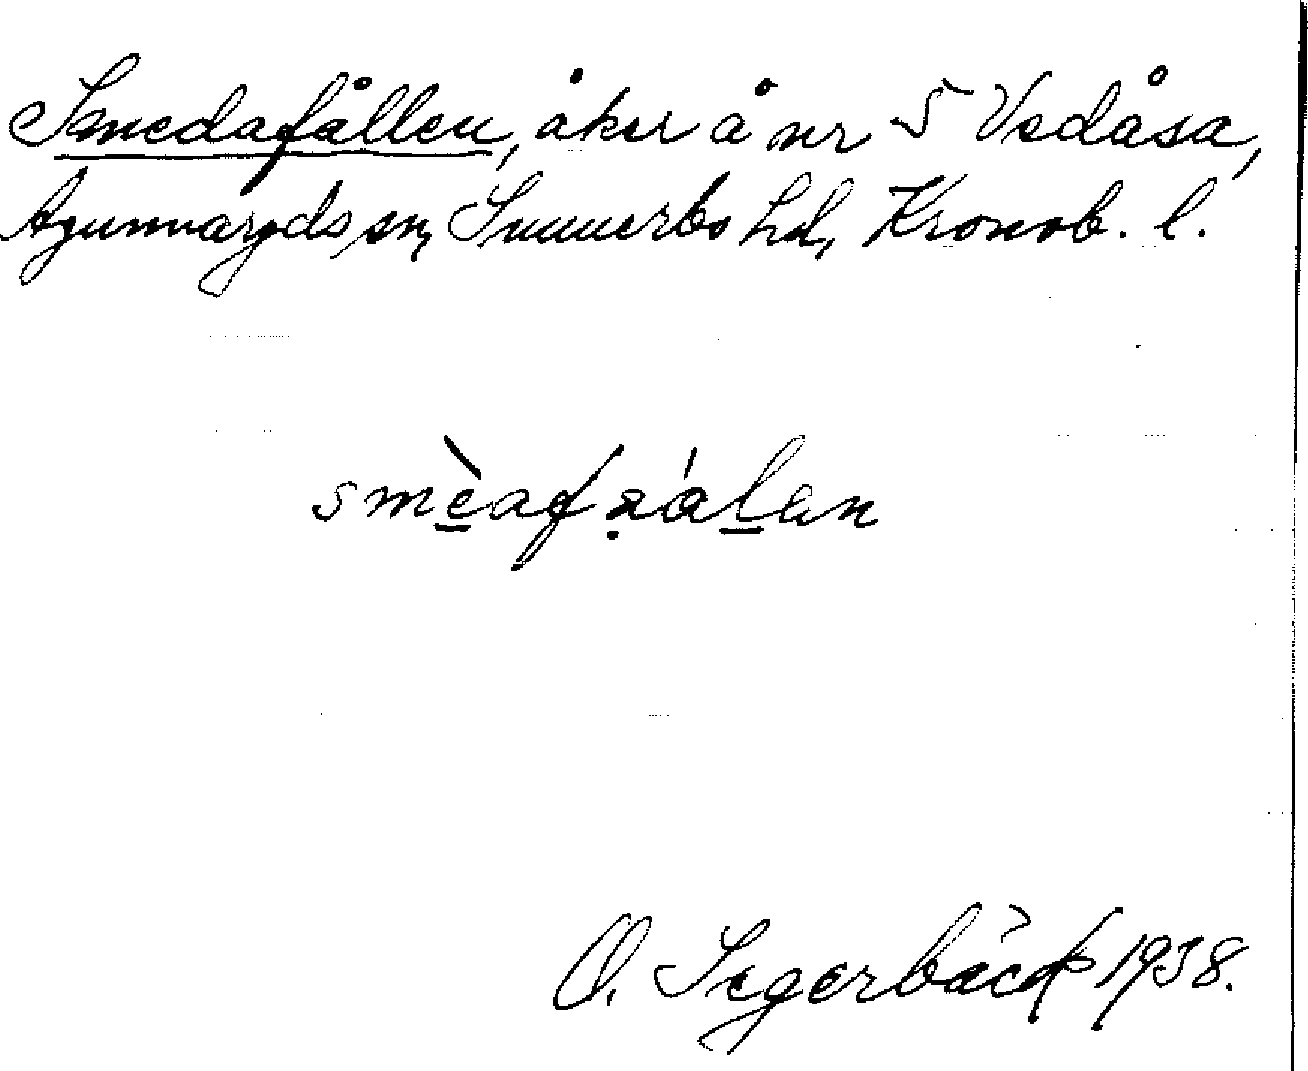 Smedafållen, åker å nr 5 Vedåsa,
Agunnaryds sn, Sunnerbo hd, Kronob. l.
O. Segerbäck 1938.